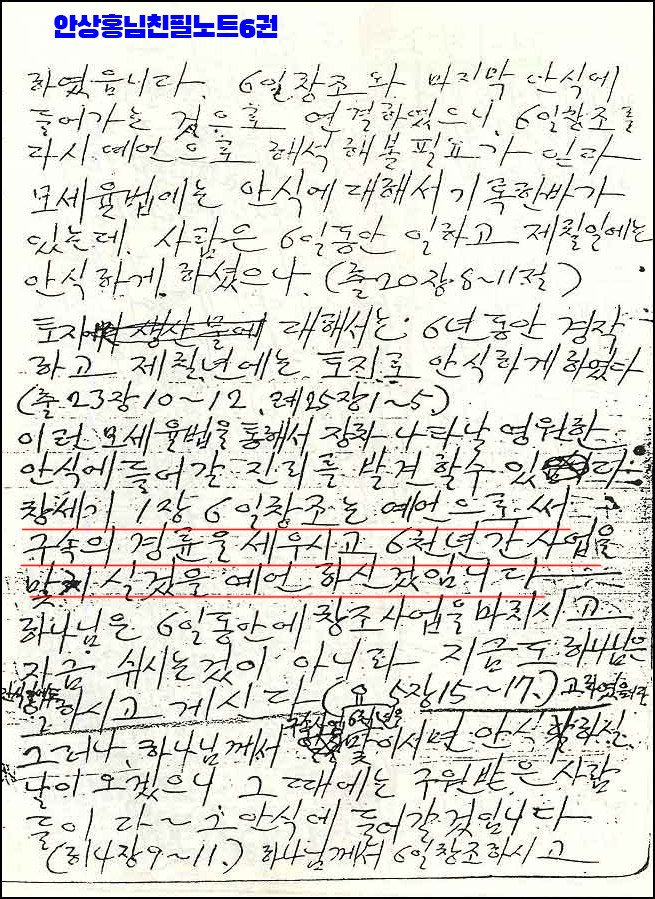 안상홍님친필노트6권
하였읍니다. 6일창조와 마지막 안식에
들어가는 것으로 연결하였으니, 6일창조를
다시 예언으로 해석해볼필요가 있다
모세율법에는 안식에대해서기록한바가
있는데. 사람은 6일동안 일하고 제칠일에는
안식하게 하셨으나. (출20장8~11절)
토지에 생산물에 대해서는 6년동안 경작
하고 제칠년에는 토지로 안식하게하였다
(출23장10~12. 레25장1~5.)
이런 모세율법을통해서 장차 나타날 영원한
안식에들어갈 진리를 발견할수 있다
창세기 1장 6일창조는 예언으로써
구속의 경륜을세우시고, 6천년간 사업을
맞치실것을 예언 하신것입니다
하나님은 6일동안에 창조사업을마치시고
지금 쉬시는것이 아니라 지금도 하나님은
하시고 게시다 (요 5장15~17.)
그러나 하나님께서 구속사업 6천년을 맞이시면 안식하실
날이 오겠으니 그때에는 구원받은 사람
들이 다~ 그안식에 들어갈것입니다
(히4장9~11.) 하나님께서 6일창조하시고